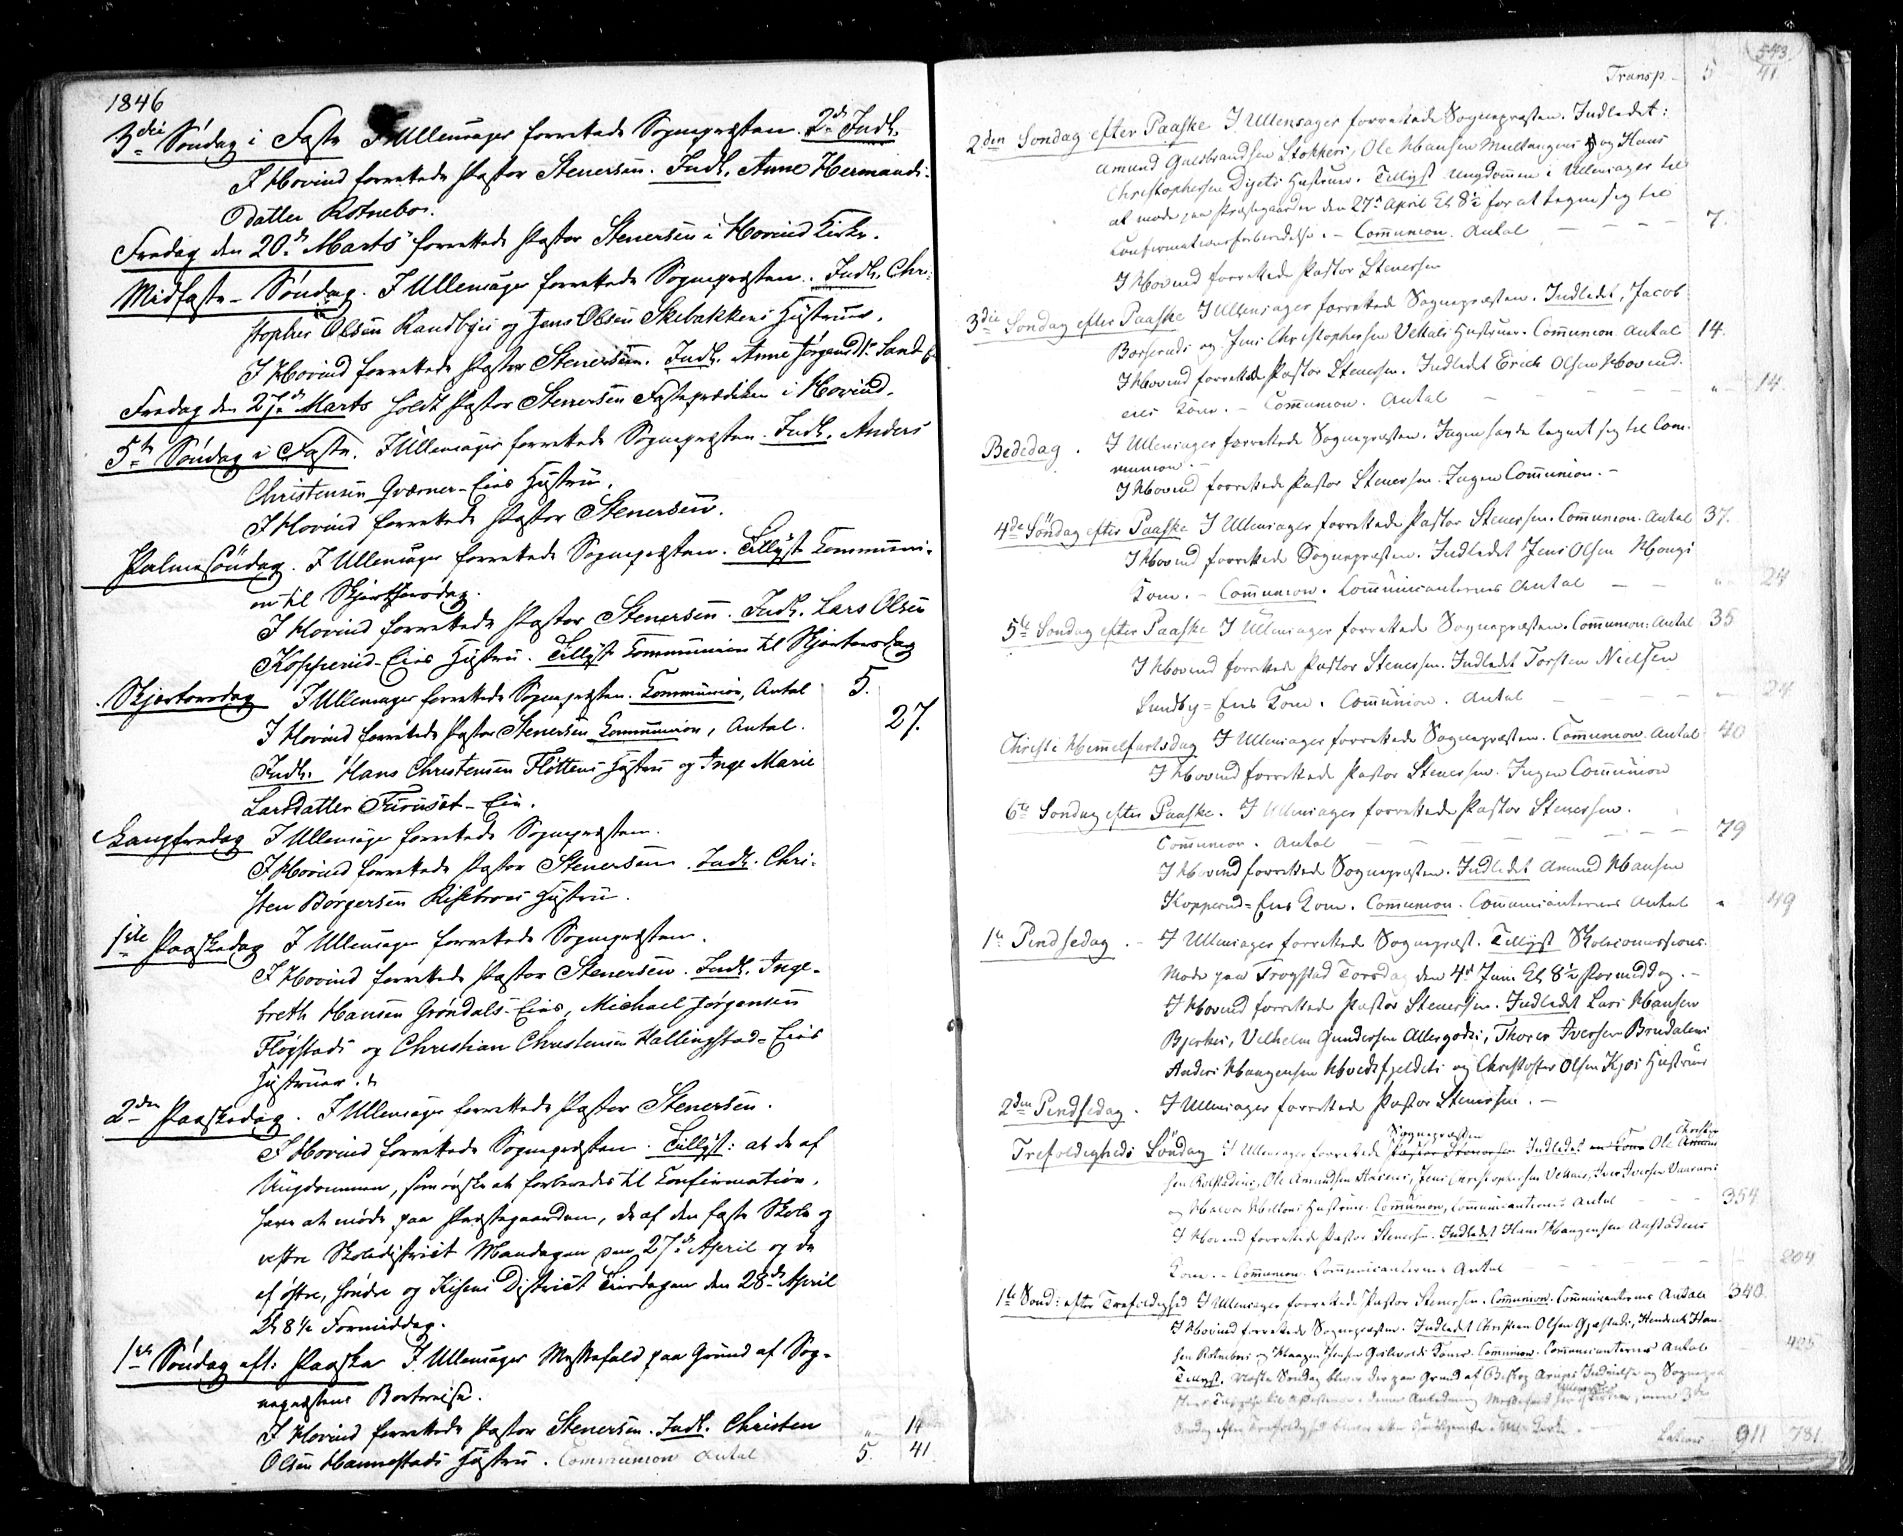 1846
3die Søndag i Faste I Ullensager forrettede Sognepræsten. 2de Indl.
I Hovind forrettede Pastor Stenersen. Indl. Anne Hermands-
datter Rotnebo.
Fredag den 20de Marts forrettede Pastor Stenersen i Hovind Kirke.
Midfaste-Søndag. I Ullensager forrettede Sognepræsten. Indl. Chri-
stopher Olsen Randbyes og Jens Olsen Skibakkens Hustruer.
I Hovind forrettede Pastor Stenersen. Indl. Anne Jørgensdtr Sand
Fredag den 27de Marts holdt Pastor Stenersen Fasteprædiken i Hovind.
5te Søndag i Faste. I Ullensager forrettede Sognepræsten. Indl. Anders
Christensen Qværner-Eies Hustru.
I Hovind forrettede Pastor Stenersen.
Palmesøndag. I Ullensager forrettede Sognepræsten. Tillyst Communi-
on til Skjærthorsdag.
I Hovind forrettede Pastor Stenersen. Indl. Lars Olsen
Kopperud-Eies Hustru. Tillyst Communion til Skjertorsdag
Skjertorsdag I Ullensager forrettede Sognepræsten. Communion, Antal 5.
I Hovind forrettede Pastor Stenersen Communion, Antal. 27.
Indl. Hans Christensen Fløttens Hustru og Inge Marie
Larsdatter Furuset-Eie.
Langfredag I Ullensager forrettede Sognepræsten.
I Hovind forrettede Pastor Stenersen. Indl. Chri-
sten Børgersen Risebroes Hustru.
1ste Paaskedag I Ullensager forrettede Sognepræsten.
I Hovind forrettede Pastor Stenersen. Indl. Inge-
breth Hansen Grøndals-Eies, Michael Jørgensen
Fløgstads og Christian Christensen Hallingstad-Eies
Hustruer.
2den Paaskedag. I Ullensager forrettede Pastor Stenersen.
I Hovind forrettede Sognepræsten. Tillyst: at de af
Ungdommen, som ønske at forberedes til Confirmation,
have at møde paa Præstegaarden, de af den faste Skole og
vestre Skoledistrict Mandagen den 27de April og de
af østre, søndre og Kisens District Tirsdagen den 28de April
Kl 8½ Formiddag.
1ste Søndag eft: Paaske I Ullensager Messefald paa Grund af Sog-
nepræstens Bortreise.
I Hovind forrettede Pastor Stenersen. Indl. Christen " 14
Olsen Hannestads Hustru. Communion Antal 5. 41.
543
Transp. 5 41
2den Søndag efter Paaske I Ullensager forrettede Sognepræsten. Indledet:
Amund Gulbrandsen Stokkers, Ole Hansen Multangens og Hans
Christophersen Dyets Hustruer. Tillyst Ungdommen i Ullensager til
at møde paa Præstegaarden den 27de April Kl 8½ for at tegne sig til
Confirmationsforberedelse. - Communion. Antal 7.
I Hovind forrettede Pastor Stenersen
3die Søndag efter Paaske I Ullensager forrettede Sognepræsten. Indledet, Jacob
Borseruds og Jens Christophersen Vettals Hustruer. Communion Antal 14.
I Hovind forrettede Pastor Stenersen. Indledet Erich Olsen Hovind-
eies Kone. - Communion. Antal " 14.
Bededag. I Ullensager forrettede Sognepræsten. Ingen havde tegnet sig til Com-
munion. -
I Hovind forrettede Pastor Stenersen. Ingen Communion. -
4de Søndag efter Paaske I Ullensager forrettede Pastor Stenersen. Communion. Antal 37.
I Hovind forrettede Sognepræsten. Indledet Jens Olsen Haugs
Kone. - Communion. Communicanternes Antal " 24
5te Søndag efter Paaske I Ullensager forrettede Sognepræsten. Communion: Antal 35
I Hovind forrettede Pastor Stenersen. Indledet Torsten Nielsen
Lundby=Eies Kone. Communion. Antal " 24
Christi Himmelfartsdag I Ullensager forrettede Sognepræsten. Communion. Antal 40
I Hovind forrettede Pastor Stenersen. Ingen Communion
6te Søndag efter Paaske. I Ullensager forrettede Pastor Stenersen.
Communion. Antal 79
I Hovind forrettede Sognepræsten. Indledet Amund Hansen
Kopperud=Eies Kone. Communion. Communicanternes Antal " 49
1te Pindsedag. - I Ullensager forrettede Sognepræst. Tillyst Skolecomissions-
Møde paa Trogstad Torsdag den 4de Juni Kl 8½ Formiddag. -
I Hovind forrettede Pastor Stenersen. Indledet Lars Hansen
Bjerkes, Vilhelm Gundersen Allergodts, Thorer Iversen Brudalens
Anders Haagensen Hvedsfjeldets og Christoffer Olsen Kjøs Hustruer
2den Pindsedag. I Ullensager forrettede Pastor Stenersen. -
Trefoldigheds Søndag I Ullensager forrettede Sognepræsten Indledet Ole Christen
sen Rolstadens, Ole Amundsen, Jens Christophersen Vettals, Iver Iversen
og Halvor Miltons Hustruer. Communion, Communicanternes Antal 354
I Hovind forrettede Pastor Stenersen. Indledet Hans Haagensen
Kone. - Communion. Communicanternes Antal 204
1te Sønd: efter Trefoldighed I Ullensager forrettede Pastor Stenersen. Communion. Communicanternes Antal 340.
I Hovind forrettede Sognepræsten. Indledet Christian Olsen Gjæstads, Hendrik Han-
sen Rotnebos og Haagen Koner. Communion. Communicanternes Antal 425
Tillyst. Næste Søndag bliver der paa Grund af Biskop Arups Indvielse og Sognepræ
Søndag efter Trefoldighed bliver
Lateris 911 781.